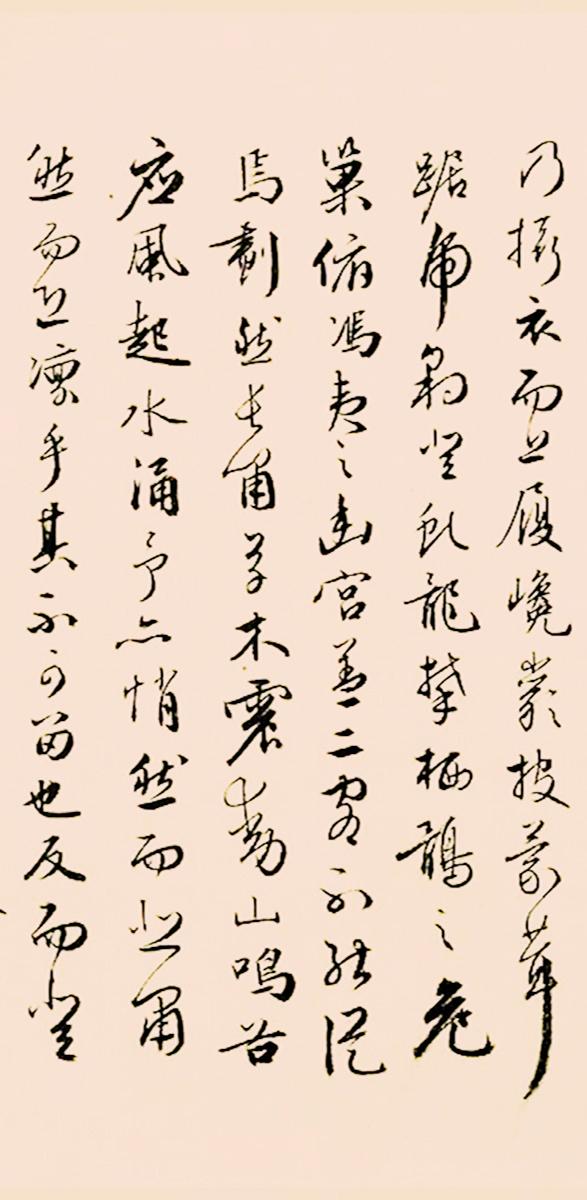 乃攝衣而上履巉巖披蒙茸
踞虎豹登虬龍攀栖鶻之危
巢俯馮夷之幽宮蓋二客不能從
焉劃然長嘯草木震動山鳴谷
應風起水涌予亦悄然而悲肅
然而恐凜乎其不可留也反而登